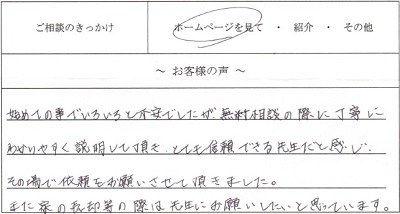 ご相談のきっかけ
ホームページを見て ・ 紹介 ・ その他
~ お客様の声 ~
始めての事でいろいろと不安でしたが無料相談の際に丁寧に
わかりやすく説明して頂き、とても信頼できる先生だと感じ、
その場で依頼をお願いさせて頂きました。
また家の売却等の際は先生にお願いしたいと思っています。